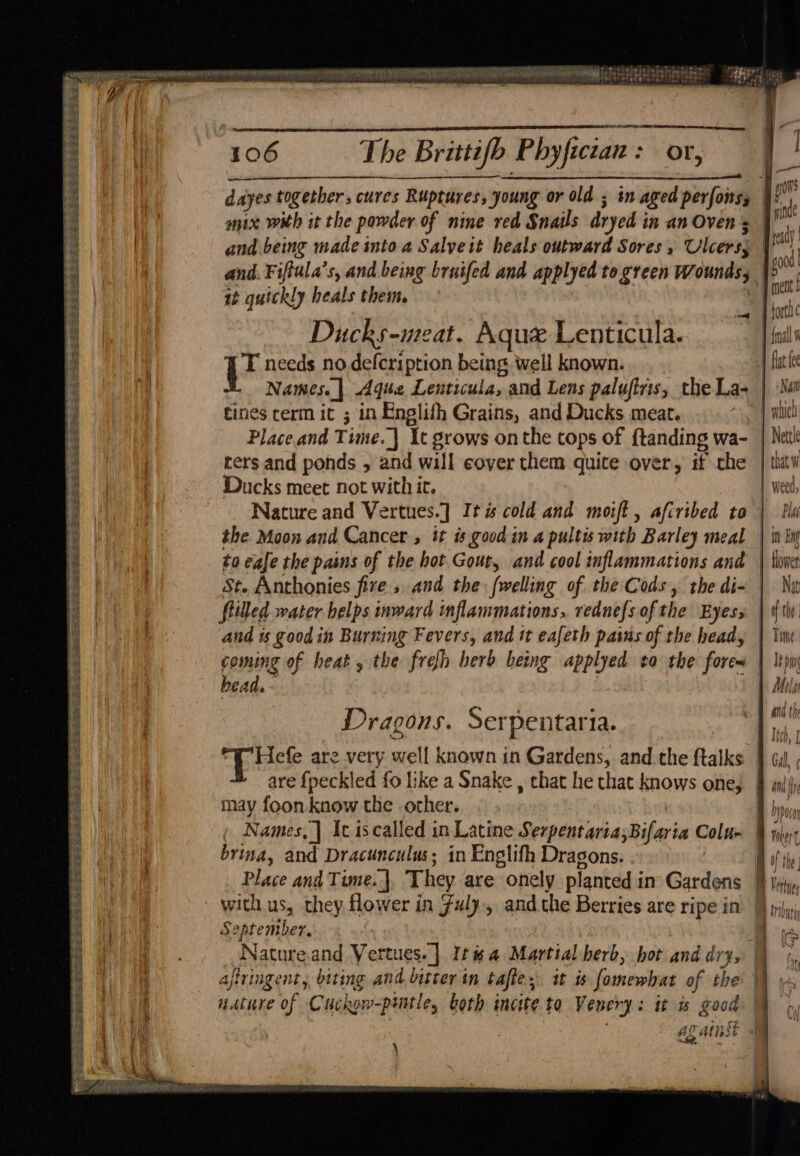 106 The Brittiſh Phyſician: or,
dayes together, cures Ruptures, young or old ; in aged perſons,
mix with it the powder of nine red Snails dryed in an Oven ;
and being made into a Salve it heals outward Sores, Ulcers,
and Fiſtula's, and being bruiſed and applyed to green Wounds,
it quickly heals them.
Ducks-meat. Aquæ Lenticula.
IT needs no deſcription being well known.
Names.] Aquæ Lenticula, and Lens paluſtris, the La-
tines term it ; in Engliſh Grains, and Ducks meat.
Place and Time.] It grows on the tops of ſtanding wa-
ters and ponds, and will cover them quite over, if the
Ducks meet not with it.
Nature and Vertues.] It is cold and moiſt, aſcribed to
the Moon and Cancer, it is good in a pultis with Barley meal
to eaſe the pains of the hot Gout, and cool inflammations and
St. Anthonies fire, and the ſwelling of the Cods, the di-
ſtilled water helps inward inflammations, redneſs of the Eyes,
and is good in Burning Fevers, and it eaſeth pains of the head,
coming of heat, the freſh herb being applyed to the fore-
head.
Dragons. Serpentaria.
THeſe are very well known in Gardens, and the ſtalks
are ſpeckled ſo like a Snake, that he that knows one,
may ſoon know the other.
Names.] It is called in Latine Serpentaria, Bifaria Colu-
brina, and Dracunculus; in Engliſh Dragons.
Place and Time.] They are onely planted in Gardens
with us, they flower in July, and the Berries are ripe in
September.
Nature and Vertues.] It is a Martial herb, hot and dry,
aſtringent, biting and bitter in taſte, it is ſomewhat of the
nature of Cuckow-pintle, both incite to Venery: it is good
againſt